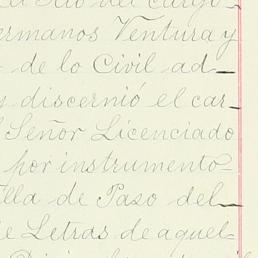 del cargo
ermanos Ventura y
de lo Civil ad-
discernió el car-
Señor Licenciado
por instrumento
lla de Paso del
e Letras de aquel-